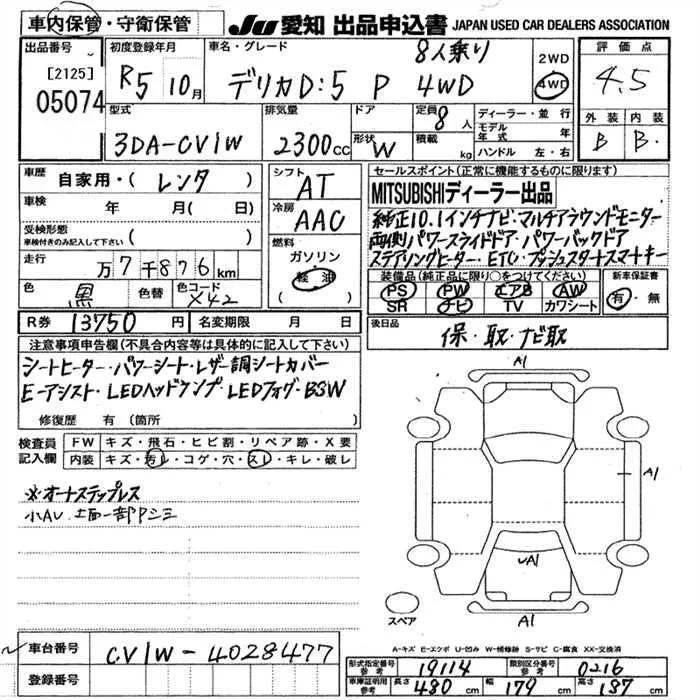 車内保管・守衛保管
JU 愛知 出品申込書 JAPAN USED CAR DEALERS ASSOCIATION
出品番号
[2125]
05074
初度登録年月
R5 10月
車名・グレード
8人乗り
デリカD:5 P 4WD
2WD
4WD
評価点
4.5
外装 内装
B B
型式
3DA-CV1W
排気量
2300cc
ドア
形状 W
定員 8人
積載 kg
ディーラー・並行
モデル年式 年
ハンドル 左・右
車歴
自家用・(レンタ)
車検 年 月( 日)
受検形態
車検付きのみ記入して下さい ( )
走行 万7千876km
色 黒 色替 色コード X42
シフト
AT
冷房
AAC
燃料
ガソリン
軽油
セールスポイント(正常に機能するものに限ります)
MITSUBISHIディーラー出品
純正10.1インチナビ・マルチアラウンドモニター
両側パワースライドドア・パワーバックドア
ステアリングヒーター・ETC・プッシュスタートスマートキー
装備品(純正品に限り○をつけてください)
PS PW エアB AW
SR ナビ TV カワシート
新車保証書
有・無
R券 13750円 名変期限 月 日
後日品
保・取・ナビ取
注意事項申告欄(不具合内容等は具体的に記入して下さい)
シートヒーター・パワーシート・レザー調シートカバー
E-アシスト・LEDヘッドランプ・LEDフォグ・BSW
修復歴 有(箇所 )
検査員記入欄
FW キズ・飛石・ヒビ割・リペア跡・X要
内装 キズ・汚レ・コゲ・穴・スレ・キレ・破レ
※オートステップレス
小AU
A1
A1
A1
A1
スペア
A-キズ E-エクボ U-凹み W-補修跡 S-サビ C-腐食 XX-交換済
車台番号 CV1W-4028477
登録番号
形式指定番号参考 19114 類別区分番号参考 0216
車庫証明用参考 長さ 480cm 幅 179cm 高さ 187cm